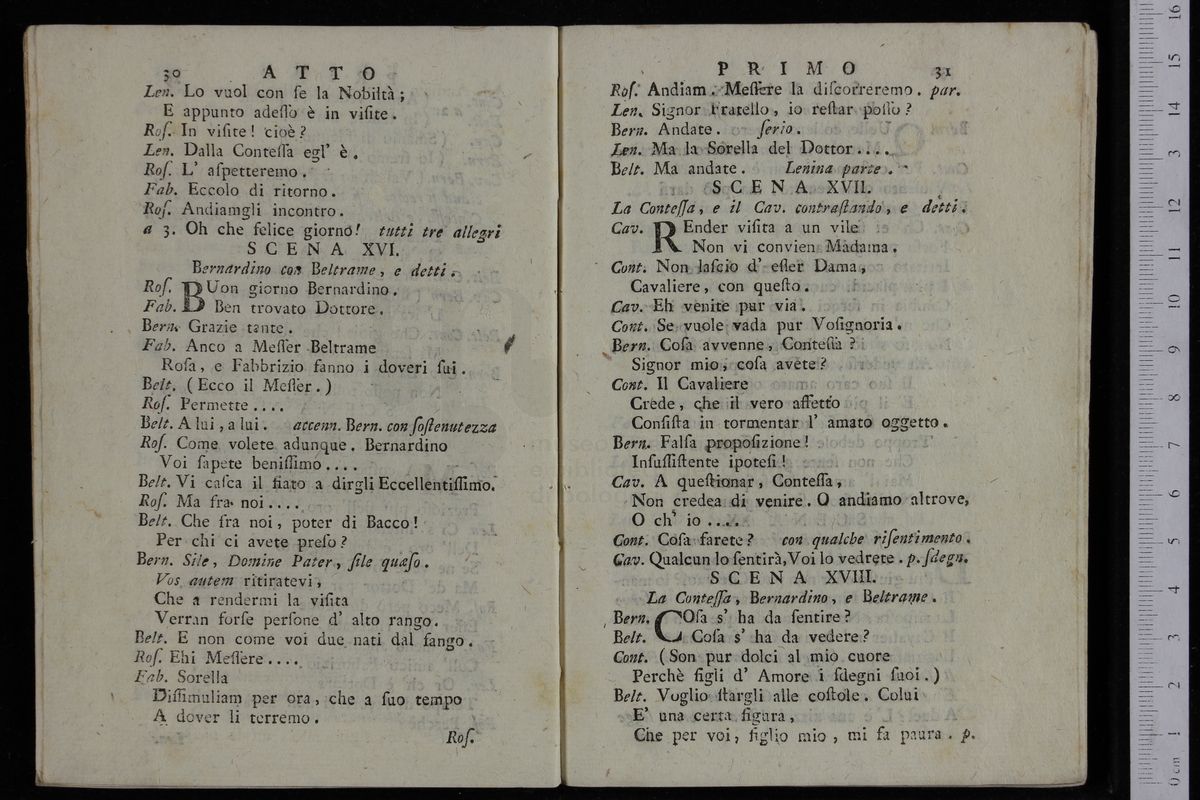 30 ATTO
Len. Lo vuol con ſe la Nobiltà;
E appunto adeſſo è in viſite.
Roſ. In viſite! cioè?
Len. Dalla Conteſſa egl' è.
Roſ. L' aſpetteremo.
Fab. Eccolo di ritorno.
Roſ. Andiamgli incontro.
a 3. Oh che felice giorno! tutti tre allegri
SCENA XVI.
Bernardino con Beltrame, e detti.
Roſ. BUon giorno Bernardino.
Fab. Ben trovato Dottore.
Bern. Grazie tante.
Fab. Anco a Meſſer Beltrame
Roſa, e Fabbrizio fanno i doveri ſui.
Belt. (Ecco il Meſſer.)
Roſ. Permette....
Belt. A lui, a lui. accenn. Bern. con ſoſtenutezza
Roſ. Come volete adunque. Bernardino
Voi ſapete beniſſimo....
Belt. Vi caſca il fiato a dirgli Eccellentiſſimo.
Roſ. Ma fra noi....
Belt. Che fra noi, poter di Bacco!
Per chi ci avete preſo?
Bern. Sile, Domine Pater, ſile quæſo.
Vos autem ritiratevi,
Che a rendermi la viſita
Verran forſe perſone d' alto rango.
Belt. E non come voi due nati dal fango.
Roſ. Ehi Meſſere....
Fab. Sorella
Diſſimuliam per ora, che a ſuo tempo
A dover li terremo.
Roſ.
PRIMO 31
Roſ. Andiam. Meſſere la diſcorreremo. par.
Len. Signor Fratello, io reſtar poſſo?
Bern. Andate. ſerio.
Len. Ma la Sorella del Dottor....
Belt. Ma andate. Lenina parte.
SCENA XVII.
La Conteſſa, e il Cav. contraſtando, e detti.
Cav. REnder viſita a un vile
Non vi convien Madama.
Cont. Non laſcio d' eſſer Dama,
Cavaliere, con queſto.
Cav. Eh venite pur via.
Cont. Se vuole vada pur Voſignoria.
Bern. Coſa avvenne, Conteſſa?
Signor mio, coſa avete?
Cont. Il Cavaliere
Crede, che il vero affetto
Conſiſta in tormentar l' amato oggetto.
Bern. Falſa propoſizione!
Inſuſſiſtente ipoteſi!
Cav. A queſtionar, Conteſſa,
Non credea di venire. O andiamo altrove,
O ch' io....
Cont. Coſa farete? con qualche riſentimento.
Cav. Qualcun lo ſentirà, Voi lo vedrete. p. ſdegn.
SCENA XVIII.
La Conteſſa, Bernardino, e Beltrame.
Bern. COſa s' ha da ſentire?
Belt. Coſa s' ha da vedere?
Cont. (Son pur dolci al mio cuore
Perchè figli d' Amore i ſdegni ſuoi.)
Belt. Voglio ſtargli alle coſtole. Colui
E' una certa figura,
Che per voi, figlio mio, mi fa paura. p.